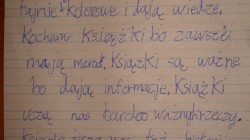 fajnie kolorowe i dają wiedzę.
Kocham książki bo zawsze
mają morał. Książki są ważne
bo dają informacje. Książki
uczą nas bardzo ważnych rzeczy.